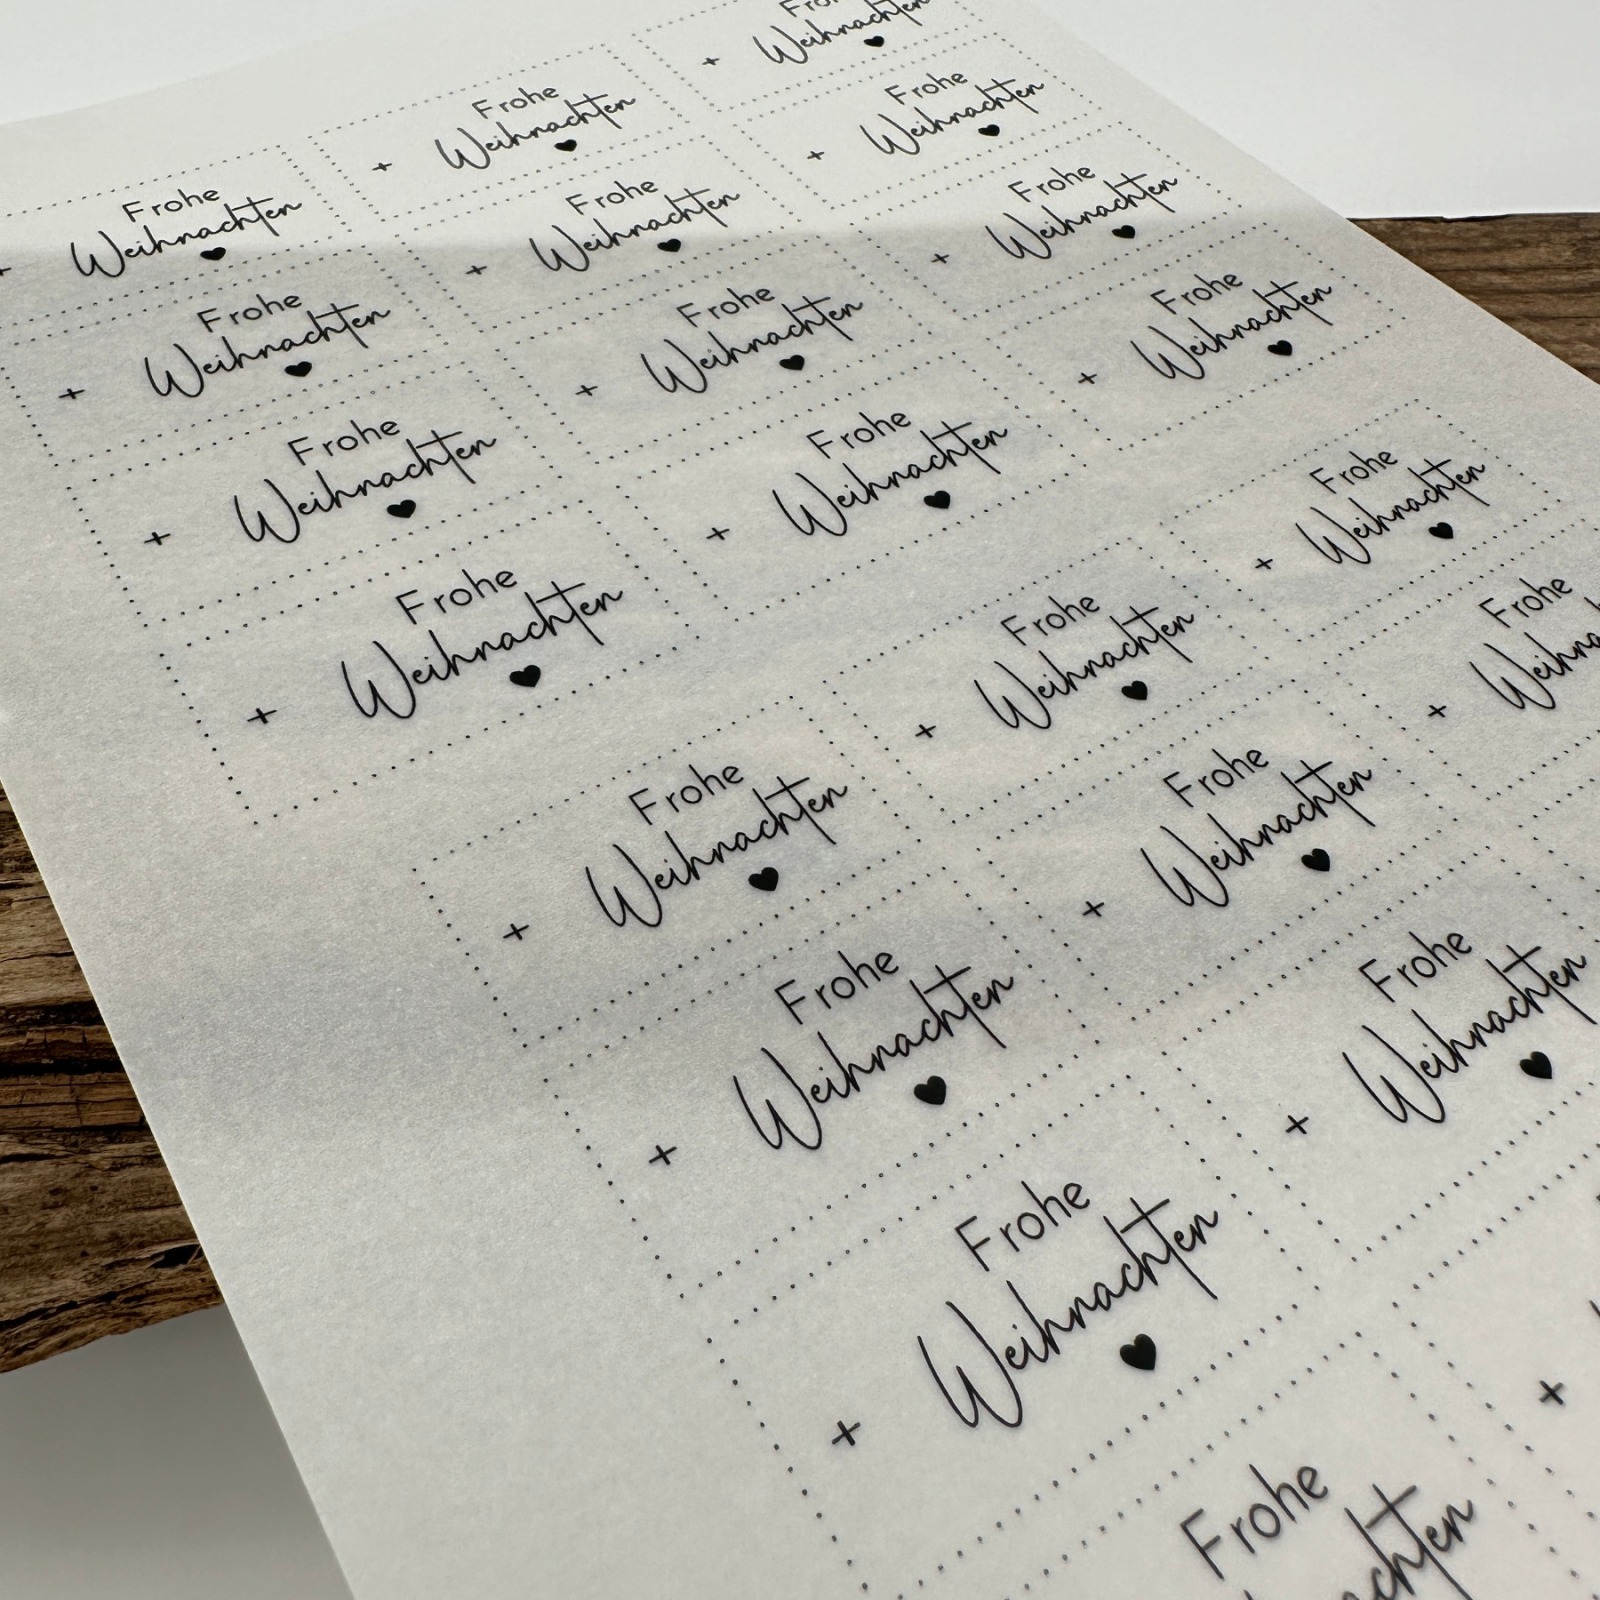 Frohe
Weihnachten
Frohe
Weihnachten
Fro
Weihnachten
Frohe
Weihnachten
Frohe
Weihnachten
Frohe
Weihnachten
Frohe
Weihnachten
Frohe
Weihnachten
Frohe
Weihnachten
Frohe
Weihnachten
Frohe
Weihnachten
Frohe
Weihnachten
Frohe
Weihnachten
Frohe
Weihnachten
Frohe
Weihnachten
Frohe
Weihnachten
Frohe
Weihnachten
Frohe
Weihna
Frohe
Weihnachten
Frohe
Weihnachten
Frohe
chten